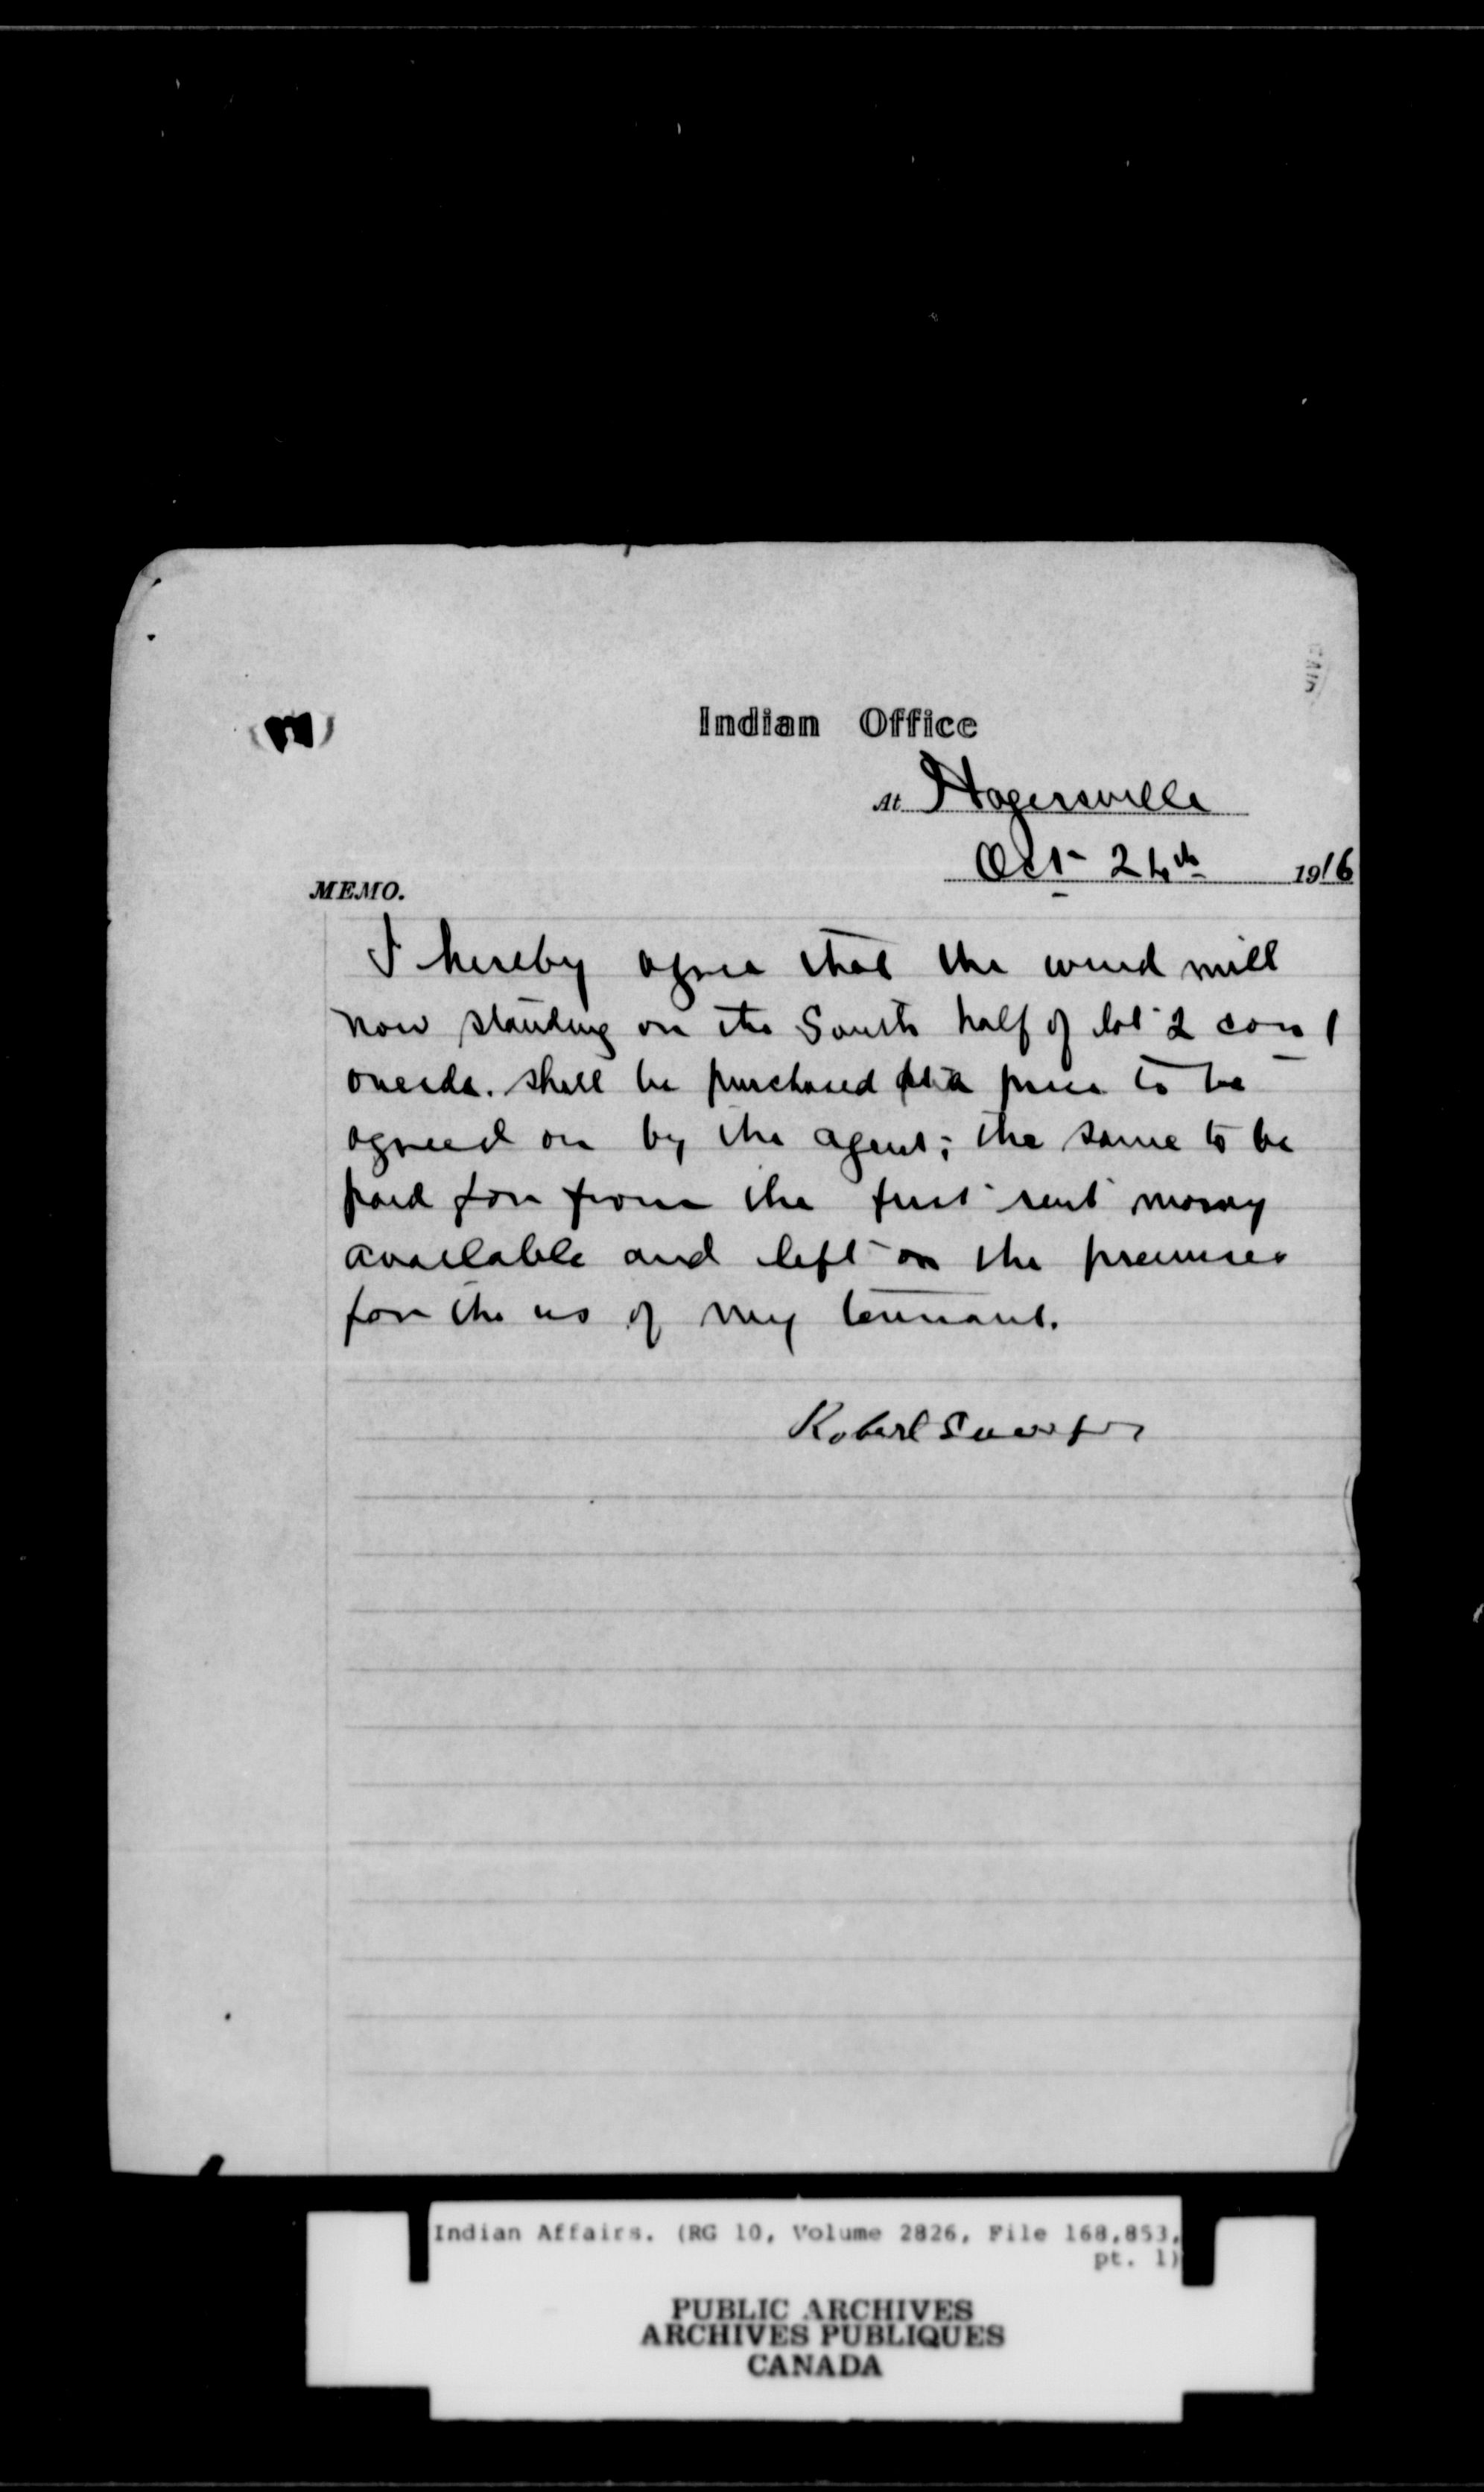 Indian Office
At Hagersville
Oct 24th 1916
MEMO.
I hereby agree that the wind mill
now standing on the South half of lot 2 con 1
oneida. shall be purchased at a price to be
agreed on by the agent; the same to be
paid for from the first rent money
available and left on the premises
for the us of my tennant.
Robert
Indian Affairs. (RG 10, Volume 2826, File 168,853,
pt. 1)
PUBLIC ARCHIVES
ARCHIVES PUBLIQUES
CANADA